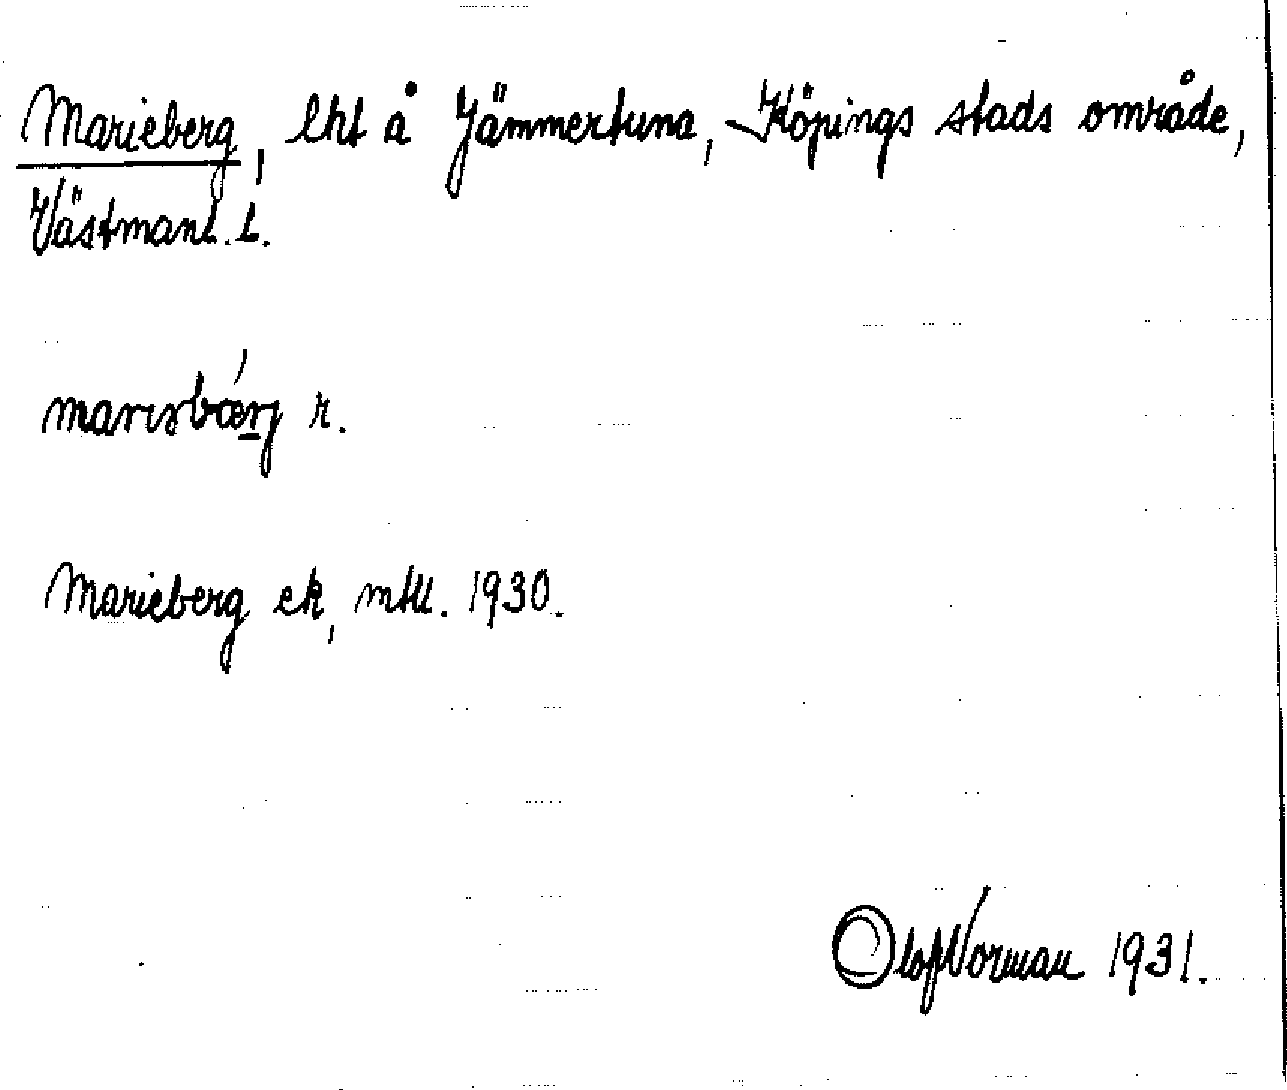 Marieberg, lht å Jämmertuna, Köpings stads område,
Västmanl. l.
r.
Marieberg ek, mtl. 1930.
Olof Norman 1931.